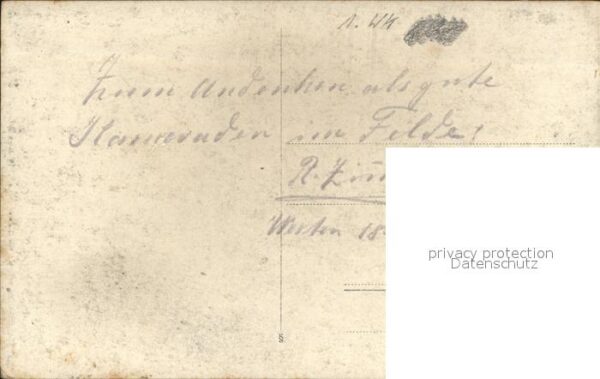 1. WK
Zum Andenken als gute
Kameraden im Felde!
R. Zim
Westen 18.
privacy protection
Datenschutz
S